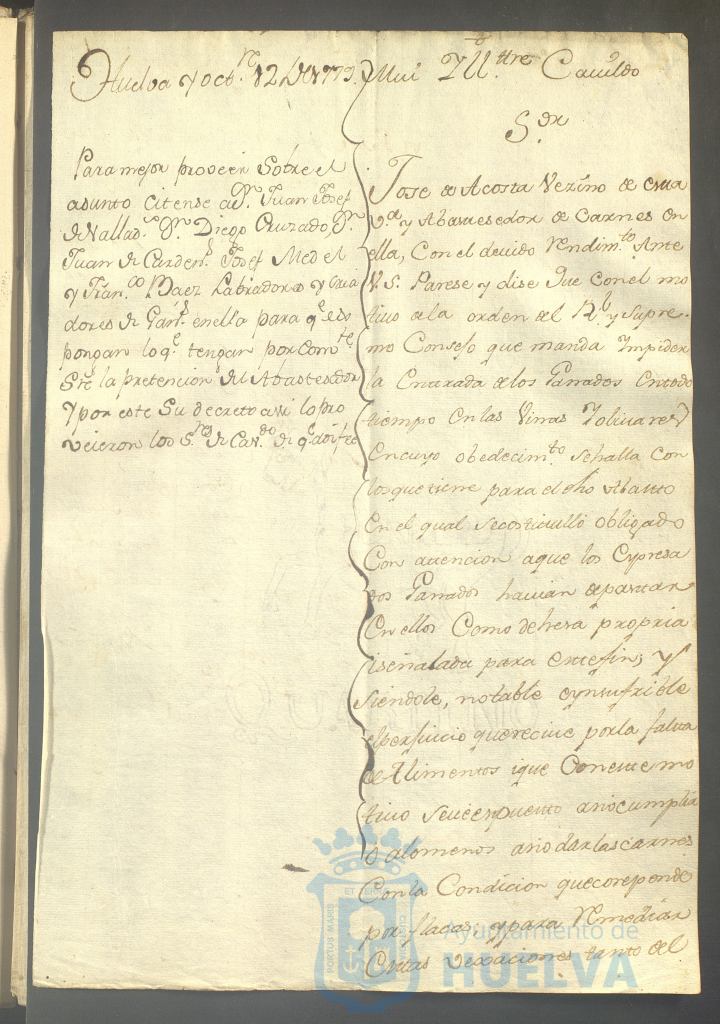 Huelva y octr.e 12 de 1779.
Para mejor proveer sobre el
asunto citense a Dn. Juan Josef
de Vallads. Dn. Diego Cruzado, Dn.
Juan de Cardens. Josef Medel
y Fran.co Baez Labradores y cria
dores de Gans. en ella para qe. es
pongan lo qe. tengan por comte.
Sre la pretencion del Abastesedor
Y por este Su decreto assi lo pro
veieron los Sres. de Cavdo. de qe. doi fee
Mui Yll.tre Cavildo
S.or
Jose de Acosta Vezino de esta
v.a y Abastesedor de Carnes en
ella, Con el devido Rendim.to Ante
V. S. Parese y dise Que con el mo
tivo a la orden del Rl. y Supre-
mo Consejo que manda Impider
la Entrada de los Ganados en todo
tiempo en las Viñas Y olivares
En cuyo obedecim.to se halla con
los que tiene para el dho Abasto
En el qual se costituilló obligado
Con attencion a que los Expresa
dos Ganados havian de pastar
En ellos Como dehesa propria
i señalada para este fin; y
Siendole, notable e ynsufrible
el perjuicio que recive por la falta
de Alimentos i que Con este mo
tivo se ve espuesto a no cumplir
o alomenos a no dar las carnes
Con la Condicion que coreponde
por flacas; y para Remediar
Estas vexaciones tanto del
Ayuntamiento de
HUELVA
PORTUS MARIS
ET TERRE
CUSTODIA